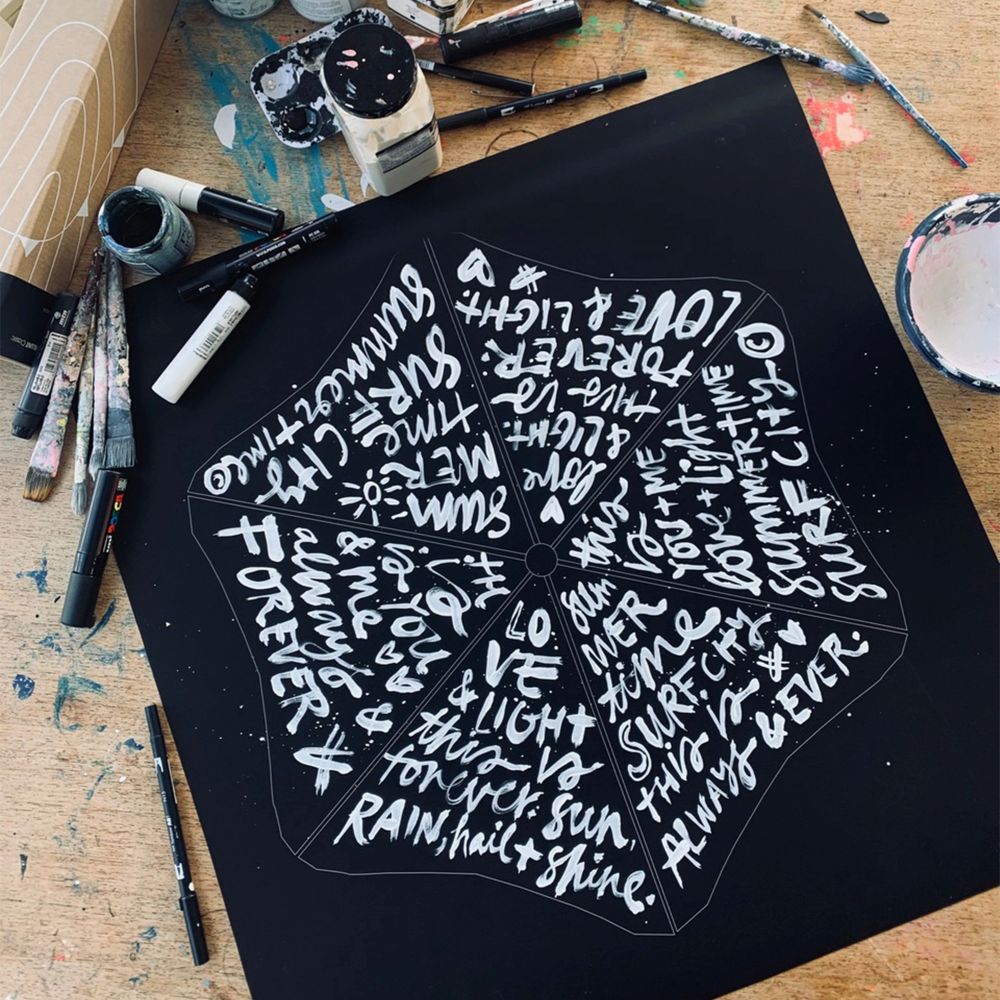 SUM
MER
time
SURF CITY
summertime ©
love
& LIGHT.
THIS IS
FOREVER.
LOVE & LIGHT.
#
this
is
YOU + ME
love + light
SUMMERTIME
SURF CITY ©
sum
MER
time
SURF.CITY
THIS IS #
ALWAYS & EVER.
LO
VE
& LIGHT
this is
forever. sun,
RAIN, hail + shine.
is
is you &
& me
always
FOREVER #